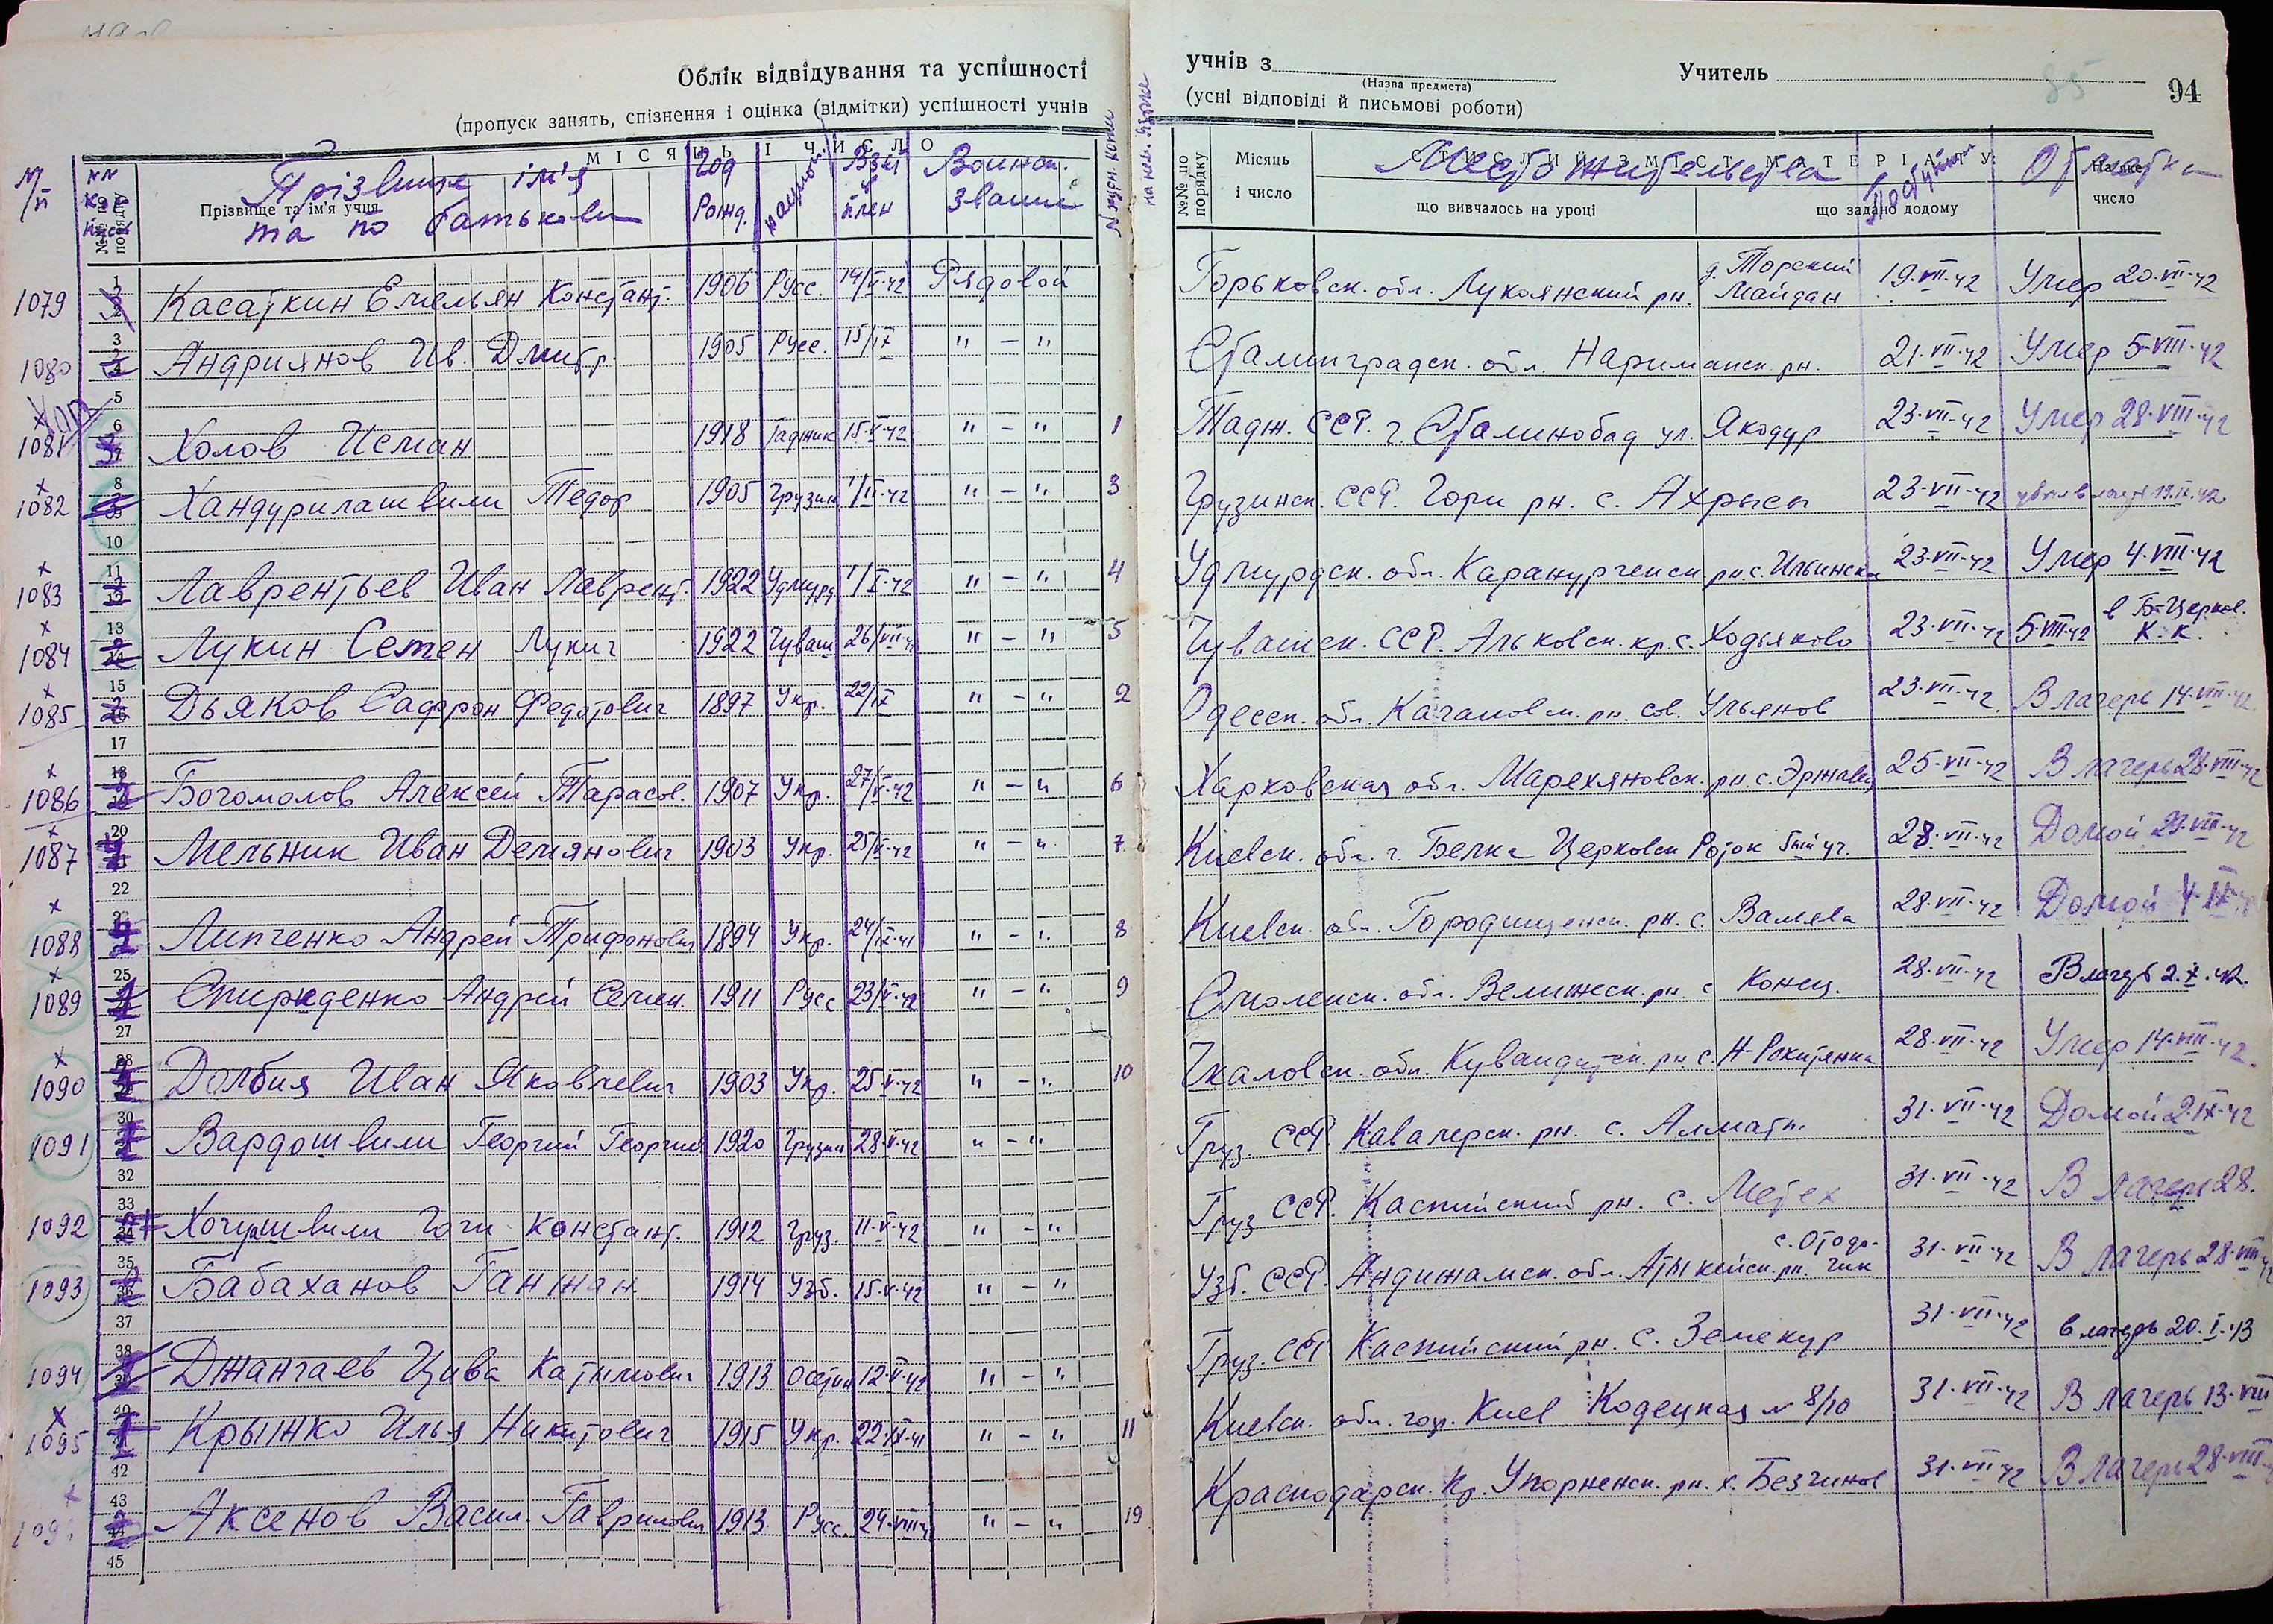 Облік відвідування та успішності
(пропуск занять, спізнення і оцінка (відмітки) успішності учнів
учнів з
(Назва предмета)
Учитель
94
(усні відповіді й письмові роботи)
МІСЯЦЬ І ЧИСЛО
№№ по порядку
Прізвище та ім'я учня
Прізвище ім'я та по батькові
Год Рожд.
Взят в плен
Воинск. звание
№№ по порядку
Місяць і число
СТИСЛИЙ ЗМІСТ МАТЕРІАЛУ:
Место жительства
що вивчалось на уроці
що задано додому
Отметка
На яке число
1079 Касаткин Емельян Констант. 1906 Русс. 14/V-42 Рядовой Горьковск. обл. Лукоянский рн. д. Торский Майдан 19-VII-42 Умер 20-VII-42
1080 Андриянов Ив. Дмитр. 1905 Русс. 15/IX " - " Сталинградск. обл. Нариманск. рн. 21-VII-42 Умер 5-VIII-42
1081 Холов Исман 1918 Таджик 15-V-42 " - " 1 Тадж. ССР. г. Сталинобад ул. Якодур 23-VII-42 Умер 28-VIII-42
1082 Хандурилашвили Тедор 1905 Грузин " - " 3 Грузинск. ССР. Гори рн. с. Ахрысы 23-VII-42
1083 Лаврентьев Иван Лаврент. 1922 Удмурд " - " 4 Удмурдск. обл. рн. с. Ильинск 23-VII-42 Умер 4-VIII-42
1084 Лукин Семен Лукич 1922 Чуваш 26/VII " - " 5 Чувашск. ССР. Альковск. кр. с. Ходяково 23-VII-42 5-VIII-42 в Б-Церков. К. К.
1085 Дьяков Сафрон Федотович 1897 Укр. 22/IX " - " 2 Одесск. обл. рн. сов. Ульянов 23-VII-42 В лагерь 14-VIII-42
1086 Богомолов Алексей Тарасов. 1907 Укр. 27/V-42 " - " 6 Харковская обл. рн. с. 25-VII-42 В лагерь 28-VIII-42
1087 Мельник Иван Демянович 1903 Укр. 25/V-42 " - " 7 Киевск. обл. г. Белая Церковск Роток 28-VII-42 Домой 29-VIII-42
1088 Липченко Андрей Трифонович 1894 Укр. 24/IX-41 " - " 8 Киевск. обл. Городищенск. рн. с. Валява 28-VII-42 Домой 4-IX
1089 Спириденко Андрей Семен. 1911 Русс 23/V-42 " - " 9 Смоленск. обл. Велижск. рн с Конец. 28-VII-42 В лагерь 2.X.42.
1090 Долбия Иван Яковлевич 1903 Укр. 25-V-42 " - " 10 Чкаловск. обл. рн. с. Н-Рокитянка 28-VII-42 Умер 14-VIII-42.
1091 Вардошвили Георгий Георгиев 1920 Грузин 28-V-42 " - " Груз. ССР. Кавалерск. рн. с. Алмати. 31-VII-42 Домой 2-IX-42
1092 Хочушвили Гоги Констант. 1912 Груз. 11-V-42 " - " Груз ССР. Каспийский рн. с. Метех 31-VII-42 В лагерь 28.
1093 Бабаханов Ганжан. 1914 Узб. 15-V-42 " - " Узб. ССР. Андижанск. обл. рн. 31-VII-42 В лагерь 28-VIII
1094 Джангаев Цива Катимович 1913 Осетин 12-V-42 " - " Груз. ССР Каспийский рн. с. Земекур 31-VII-42 в лагерь 20.I.43
1095 Крыжко Илья Никитович 1915 Укр. 22-IX-41 " - " 11 Киевск. обл. гор. Киев Кодецкая № 8/10 31-VII-42 В лагерь 13-VIII
Аксенов Васил. Гаврилович 1913 Русс. 24-VIII " - " 19 Краснодарск. Кр. Упорненск. рн. х. Безчинов 31-VII-42 В лагерь 28-VIII